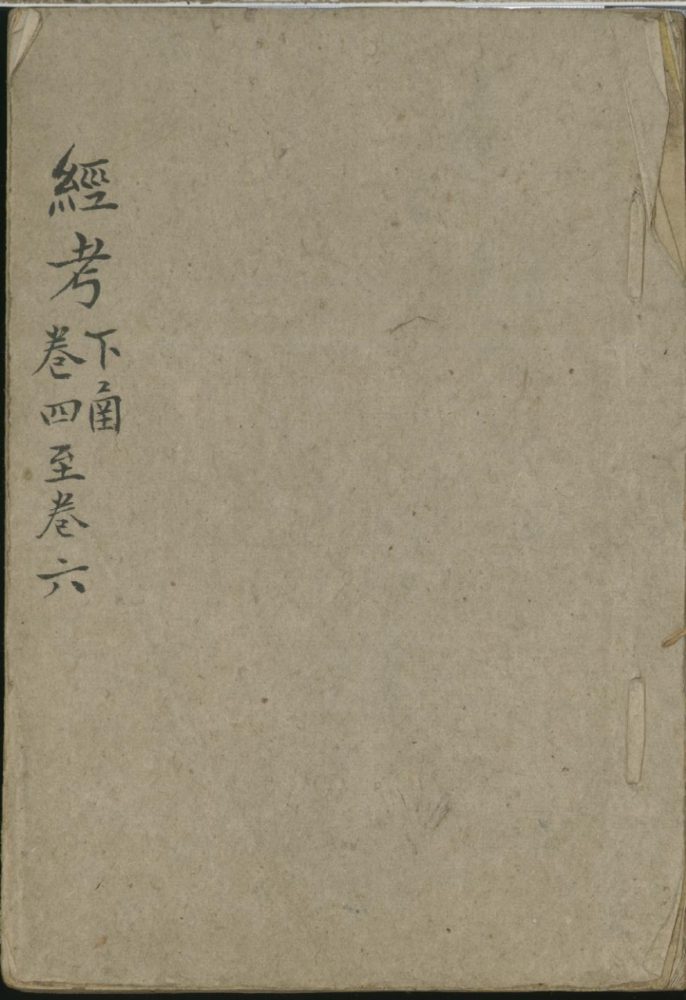 經考
下凾
卷四至卷六